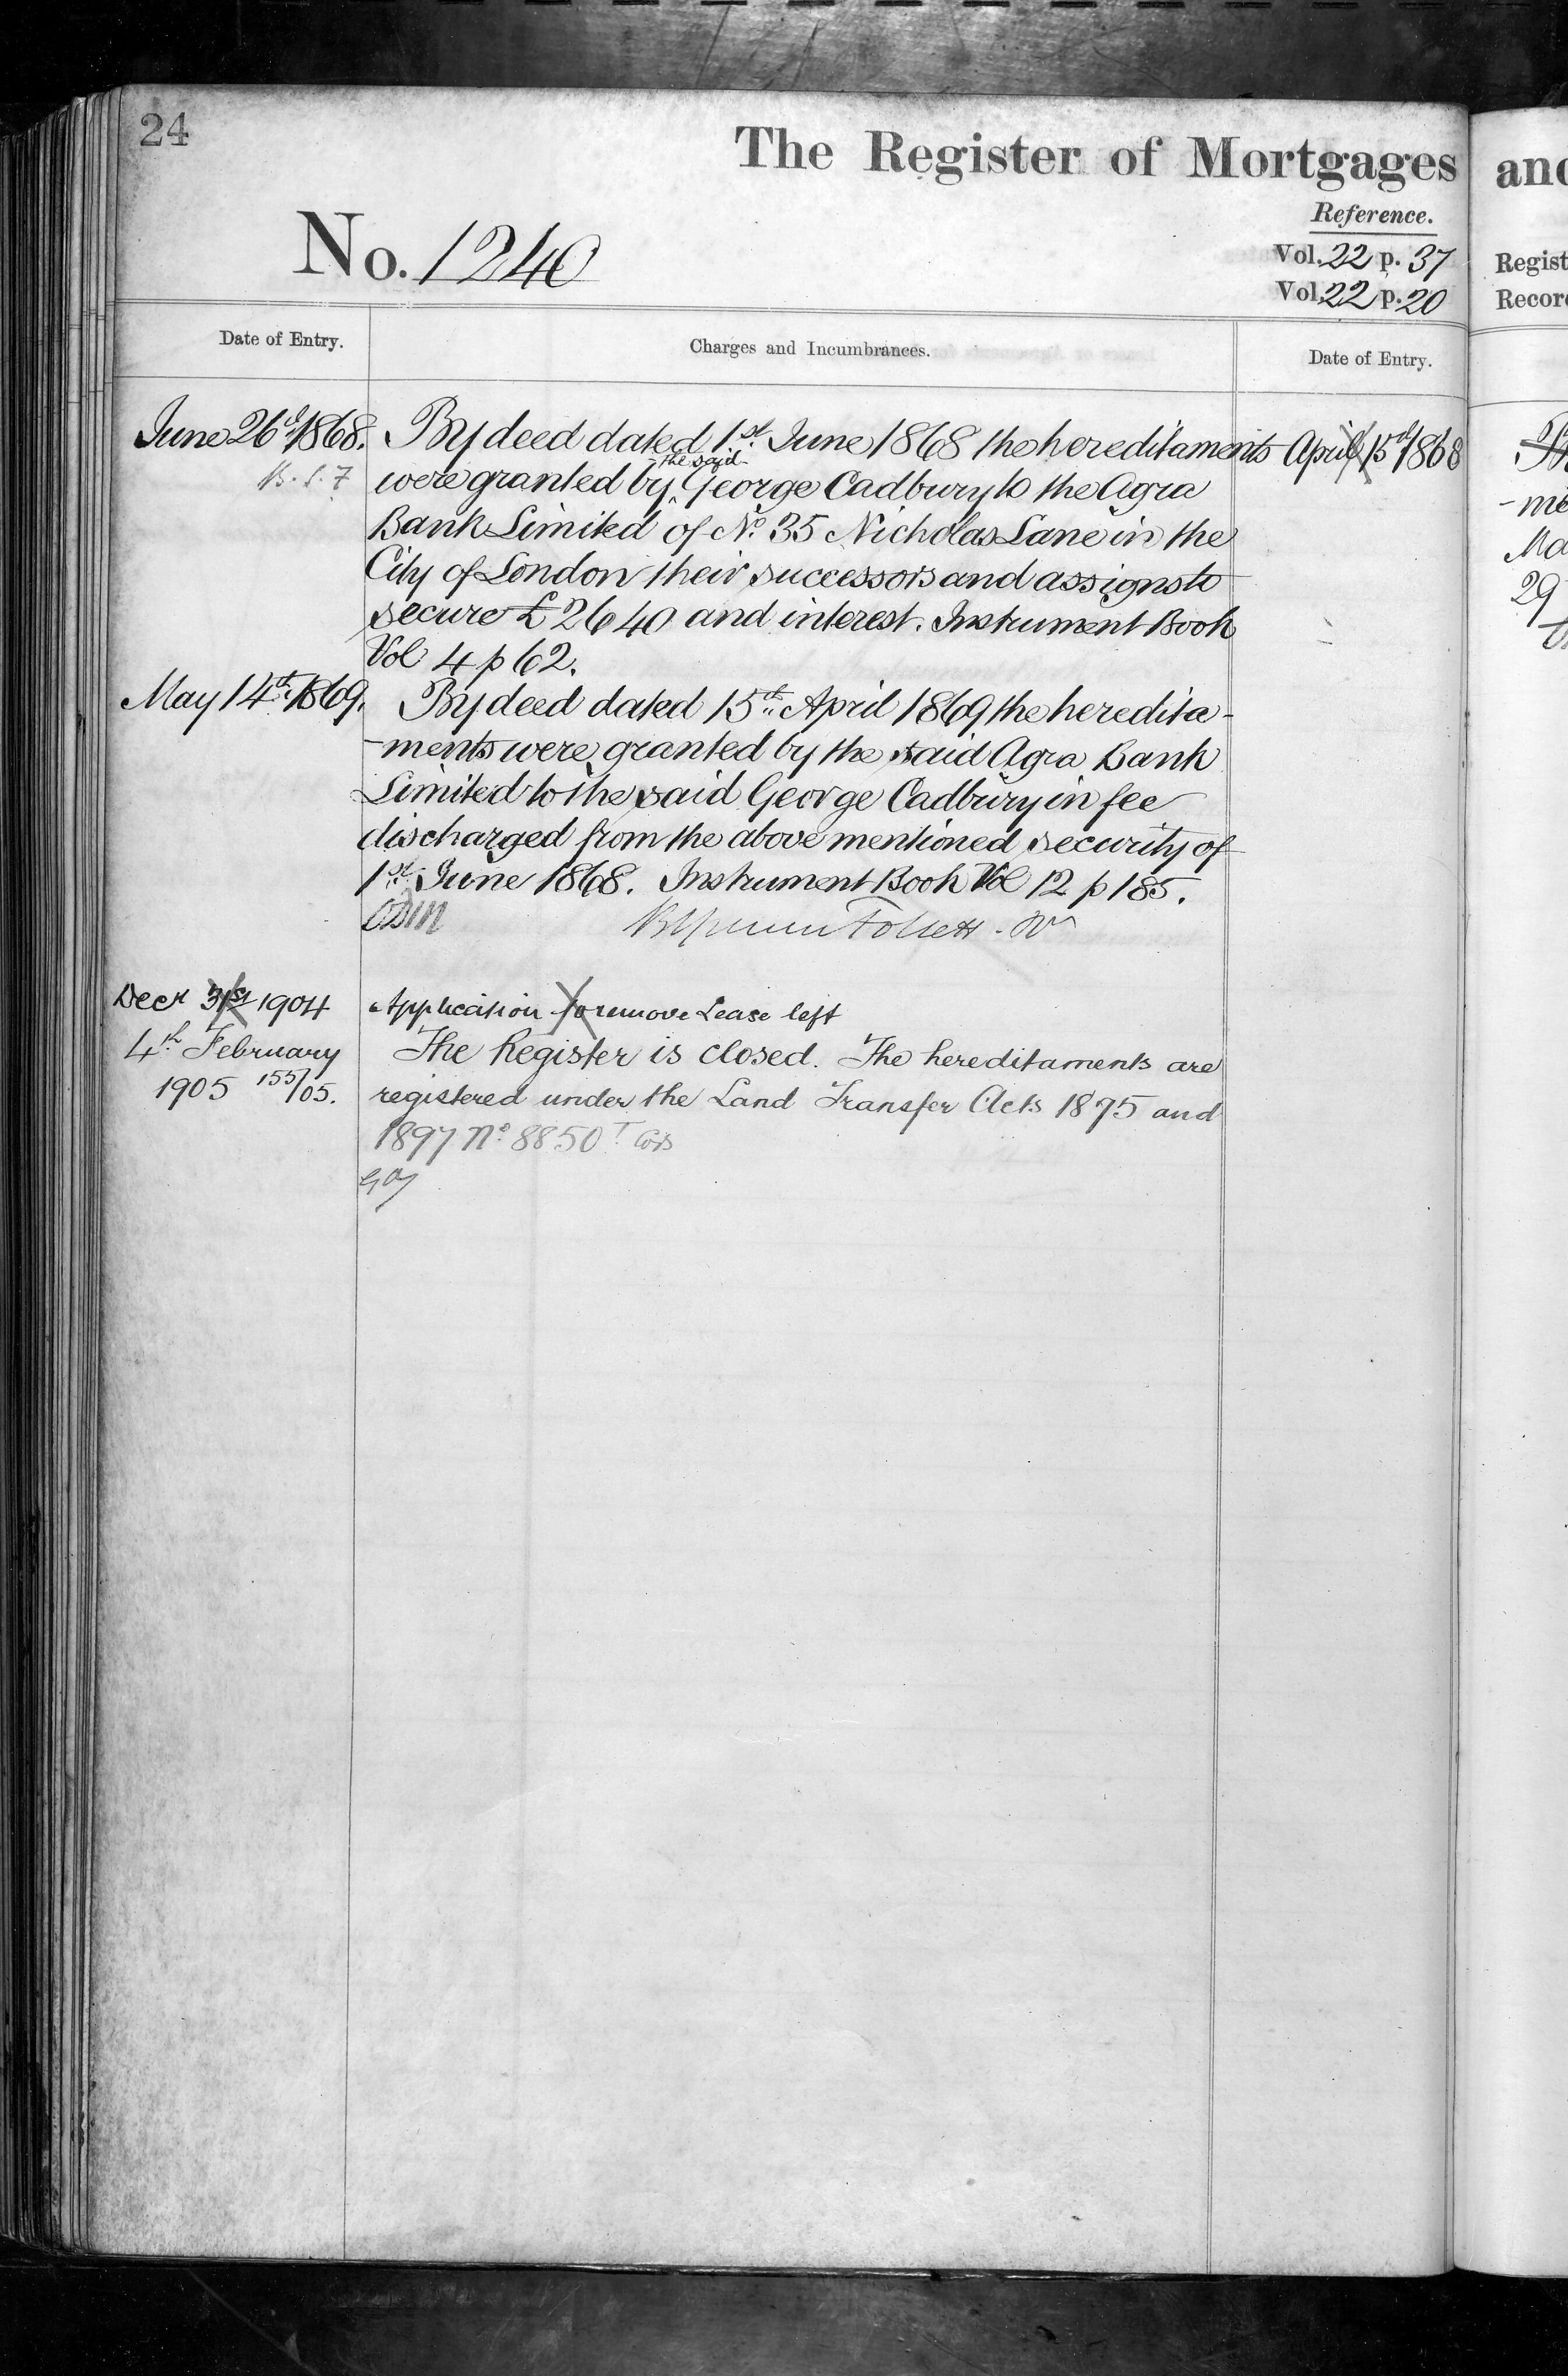 24
The Register of Mortgages
Reference.
No. 1240
Vol. 22 p. 37
Vol. 22 p. 20
Date of Entry.
Charges and Incumbrances.
Date of Entry.
June 26th 1868.
By deed dated 1st June 1868 the hereditaments
were granted by the said George Cadbury to the Agra
Bank Limited of No. 35 Nicholas Lane in the
City of London their successors and assigns to
secure £2640 and interest. Instrument Book
Vol 4 p 62.
April 1868
May 14th 1869.
By deed dated 15th April 1869 the heredita-
-ments were granted by the said Agra Bank
Limited to the said George Cadbury in fee
discharged from the above mentioned security of
1st June 1868. Instrument Book Vol 12 p 185.
Decr 31st 1904
Application to remove Lease left
4th February
1905 155/05.
The Register is closed. The hereditaments are
registered under the Land Transfer Acts 1875 and
1897 No. 8850
and
Regist
Recor
-me
Ma
29